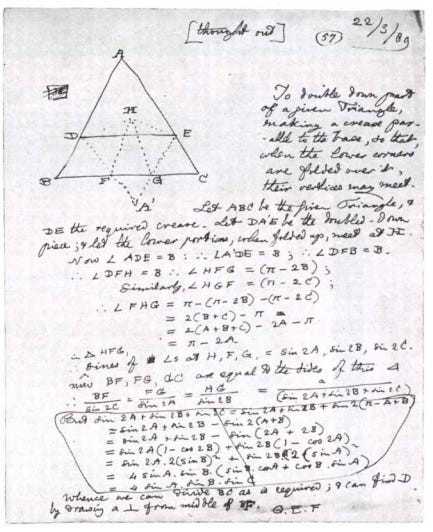 [thought out]
(57) 22/3/89
A
H
D E
B F G C
A'
To double down part
of a given Triangle,
making a crease par-
-allel to the base, so that,
when the lower corners
are folded over it,
their vertices may meet.
Let ABC be the given Triangle, &
DE the required crease. Let DA'E be the doubled-down
piece; & let the lower portions, when folded up, meet at H.
Now ∠ADE = B; ∴ ∠A'DE = B; ∴ ∠DFB = B.
∴ ∠DFH = B ∴ ∠HFG = (π-2B);
Similarly, ∠HGF = (π-2C);
∴ ∠FHG = π-(π-2B)-(π-2C)
= 2(B+C)-π
= 2(A+B+C)-2A-π
= π-2A.
∴ △HFG,
Sines of ∠s at H, F, G, = sin 2A, sin 2B, sin 2C.
now BF, FG, GC are equal to the sides of this △
∴ BF/sin 2C = FG/sin 2A = HG/sin 2B = a/(sin 2A+sin 2B+sin 2C)
But sin 2A+sin 2B+sin 2C = sin 2A+sin 2B+sin 2(π-A+B)
= sin 2A+sin 2B-sin 2(A+B)
= sin 2A+sin 2B-sin (2A+2B)
= sin 2A(1-cos 2B)+sin 2B(1-cos 2A)
= sin 2A.2(sin B)²+sin 2B.2(sin A)²
= 4 sin A. sin B.(sin B. cos A+cos B. sin A)
= 4 sin A. sin B. sin C
Whence we can divide BC as required; & can find D
by drawing a ⊥ from middle of BF. Q.E.F